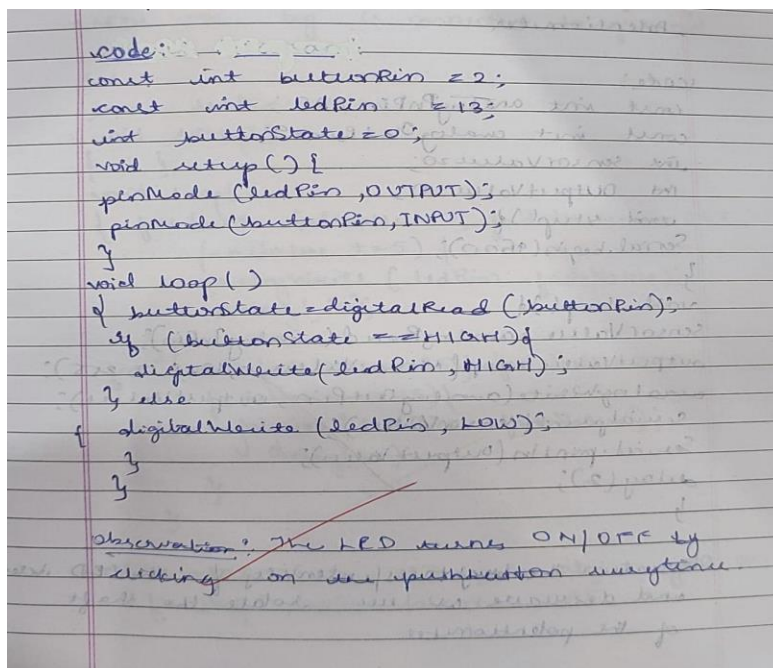 code:
const int buttonPin = 2;
const int ledPin = 13;
int buttonState = 0;
void setup() {
pinMode (ledPin, OUTPUT);
pinMode (buttonPin, INPUT);
}
void loop()
{ buttonState = digitalRead (buttonPin);
if (buttonState == HIGH) {
digitalWrite( ledPin, HIGH);
} else
{ digitalWrite (ledPin, LOW);
}
}
observation: The LED turns ON/OFF by
clicking on the pushbutton everytime.